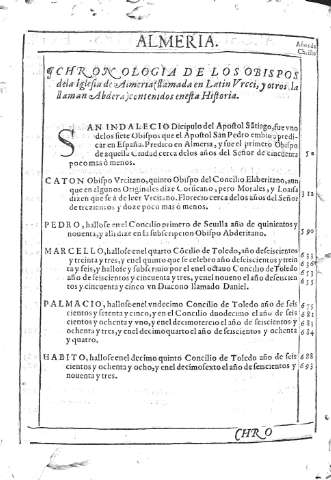 ALMERIA.
Años de
Christo
¶ CHRONOLOGIA DE LOS OBISPOS
dela Iglesia de Almeria (llamada en Latin Vrcci, y otros la
llaman Abdera) contenidos en esta Historia.
SAN INDALECIO Dicipulo del Apostol Sātiago, fue vno
delos siete Obispos que el Apostol San Pedro embio a predi-
car en España. Predico en Almeria, y fue el primero Obispo
de aquella Ciudad cerca delos años del Señor de cincuenta
poco mas ò menos.
50
CATON Obispo Vrcitano, quinto Obispo del Concilio Eliberitano, aun
que en algunos Originales dize Corsicano, pero Morales, y Loaysa
dizen que se à de leer Vrcitano. Florecio cerca de los años del Señor
de trezientos y doze poco mas ò menos.
312
PEDRO, hallose en el Concilio primero de Seuilla año de quinientos y
nouenta, y alli dize en la subscripcion Obispo Abderitano.
590
MARCELLO, hallose en el quarto Cōcilio de Toledo, año de seiscientos
y treinta y tres, y en el quinto que se celebro año de seiscientos y trein
ta y seis, y hallose y subscriuio por el en el octauo Concilio de Toledo
año de seiscientos y cincuenta y tres, y en el noueno el año de seiscien
tos y cincuenta y cinco vn Diacono llamado Daniel.
633
636
653
655
PALMACIO, hallose en el vndecimo Concilio de Toledo año de seis
cientos y setenta y cinco, y en el Concilio duodecimo el año de seis
cientos y ochenta y vno, y en el decimotercio el año de seiscientos y
ochenta y tres, y en el decimoquarto el año de seiscientos y ochenta
y quatro.
675
681
683
684
HABITO, hallose en el decimo quinto Concilio de Toledo año de seis
cientos y ochenta y ocho, y en el decimosexto el año de seiscientos y
nouenta y tres.
688
693
CHRO